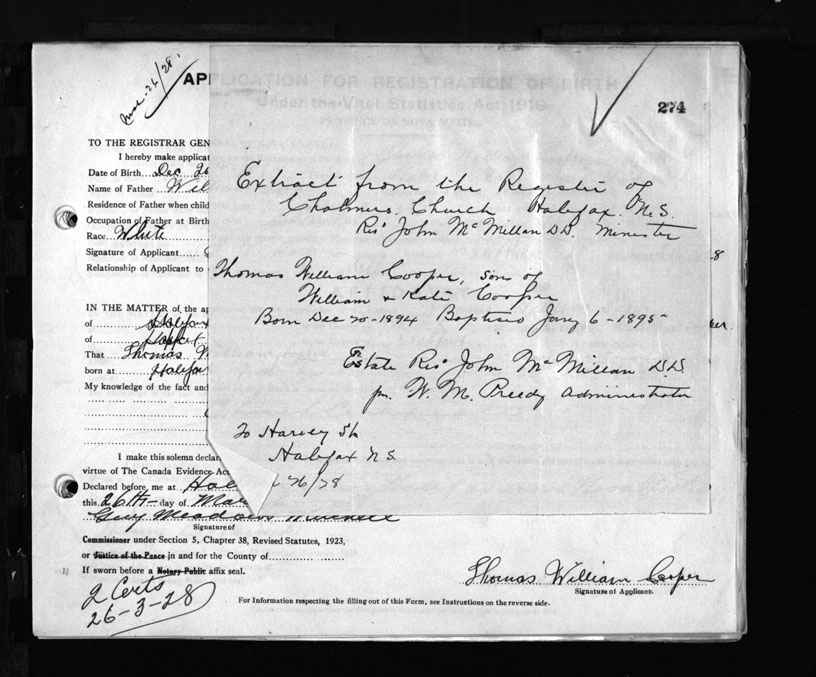 Mar. 26/28.
APPLICATION FOR REGISTRATION OF BIRTH
Under the Vital Statistics Act 1919
PROVINCE OF NOVA SCOTIA
274
TO THE REGISTRAR GEN
I hereby make applicat
Date of Birth Dec 20
Name of Father Wil
Residence of Father when child
Occupation of Father at Birth
Race White
Signature of Applicant
Relationship of Applicant to
Extract from the Register of
Chalmers Church Halifax. N.S.
Rev John McMillan D.D. Minister
Thomas William Cooper, son of
William & Kate Cooper
Born Dec 20-1894 Baptised Jany 6-1895
Estate Rev John McMillan D.D.
pr. W. M. Preedy Administrator
20 Harvey St
Halifax N.S.
26/28
IN THE MATTER of, the ap
of Halifax
of
That Thomas W
born at Halifax
My knowledge of the fact and
I make this solemn declar
virtue of The Canada Evidence Act
Declared before, me at Hal
this 26th day of Mar
Guy
Signature of
Commissioner under Section 5, Chapter 38, Revised Statutes, 1923,
or Justice of the Peace in and for the County of
If sworn before a Notary Public affix seal.
Thomas William Cooper
Signature of Applicant.
2 Certs
26-3-28
For Information respecting the filling out of this Form, see Instructions on the reverse side.